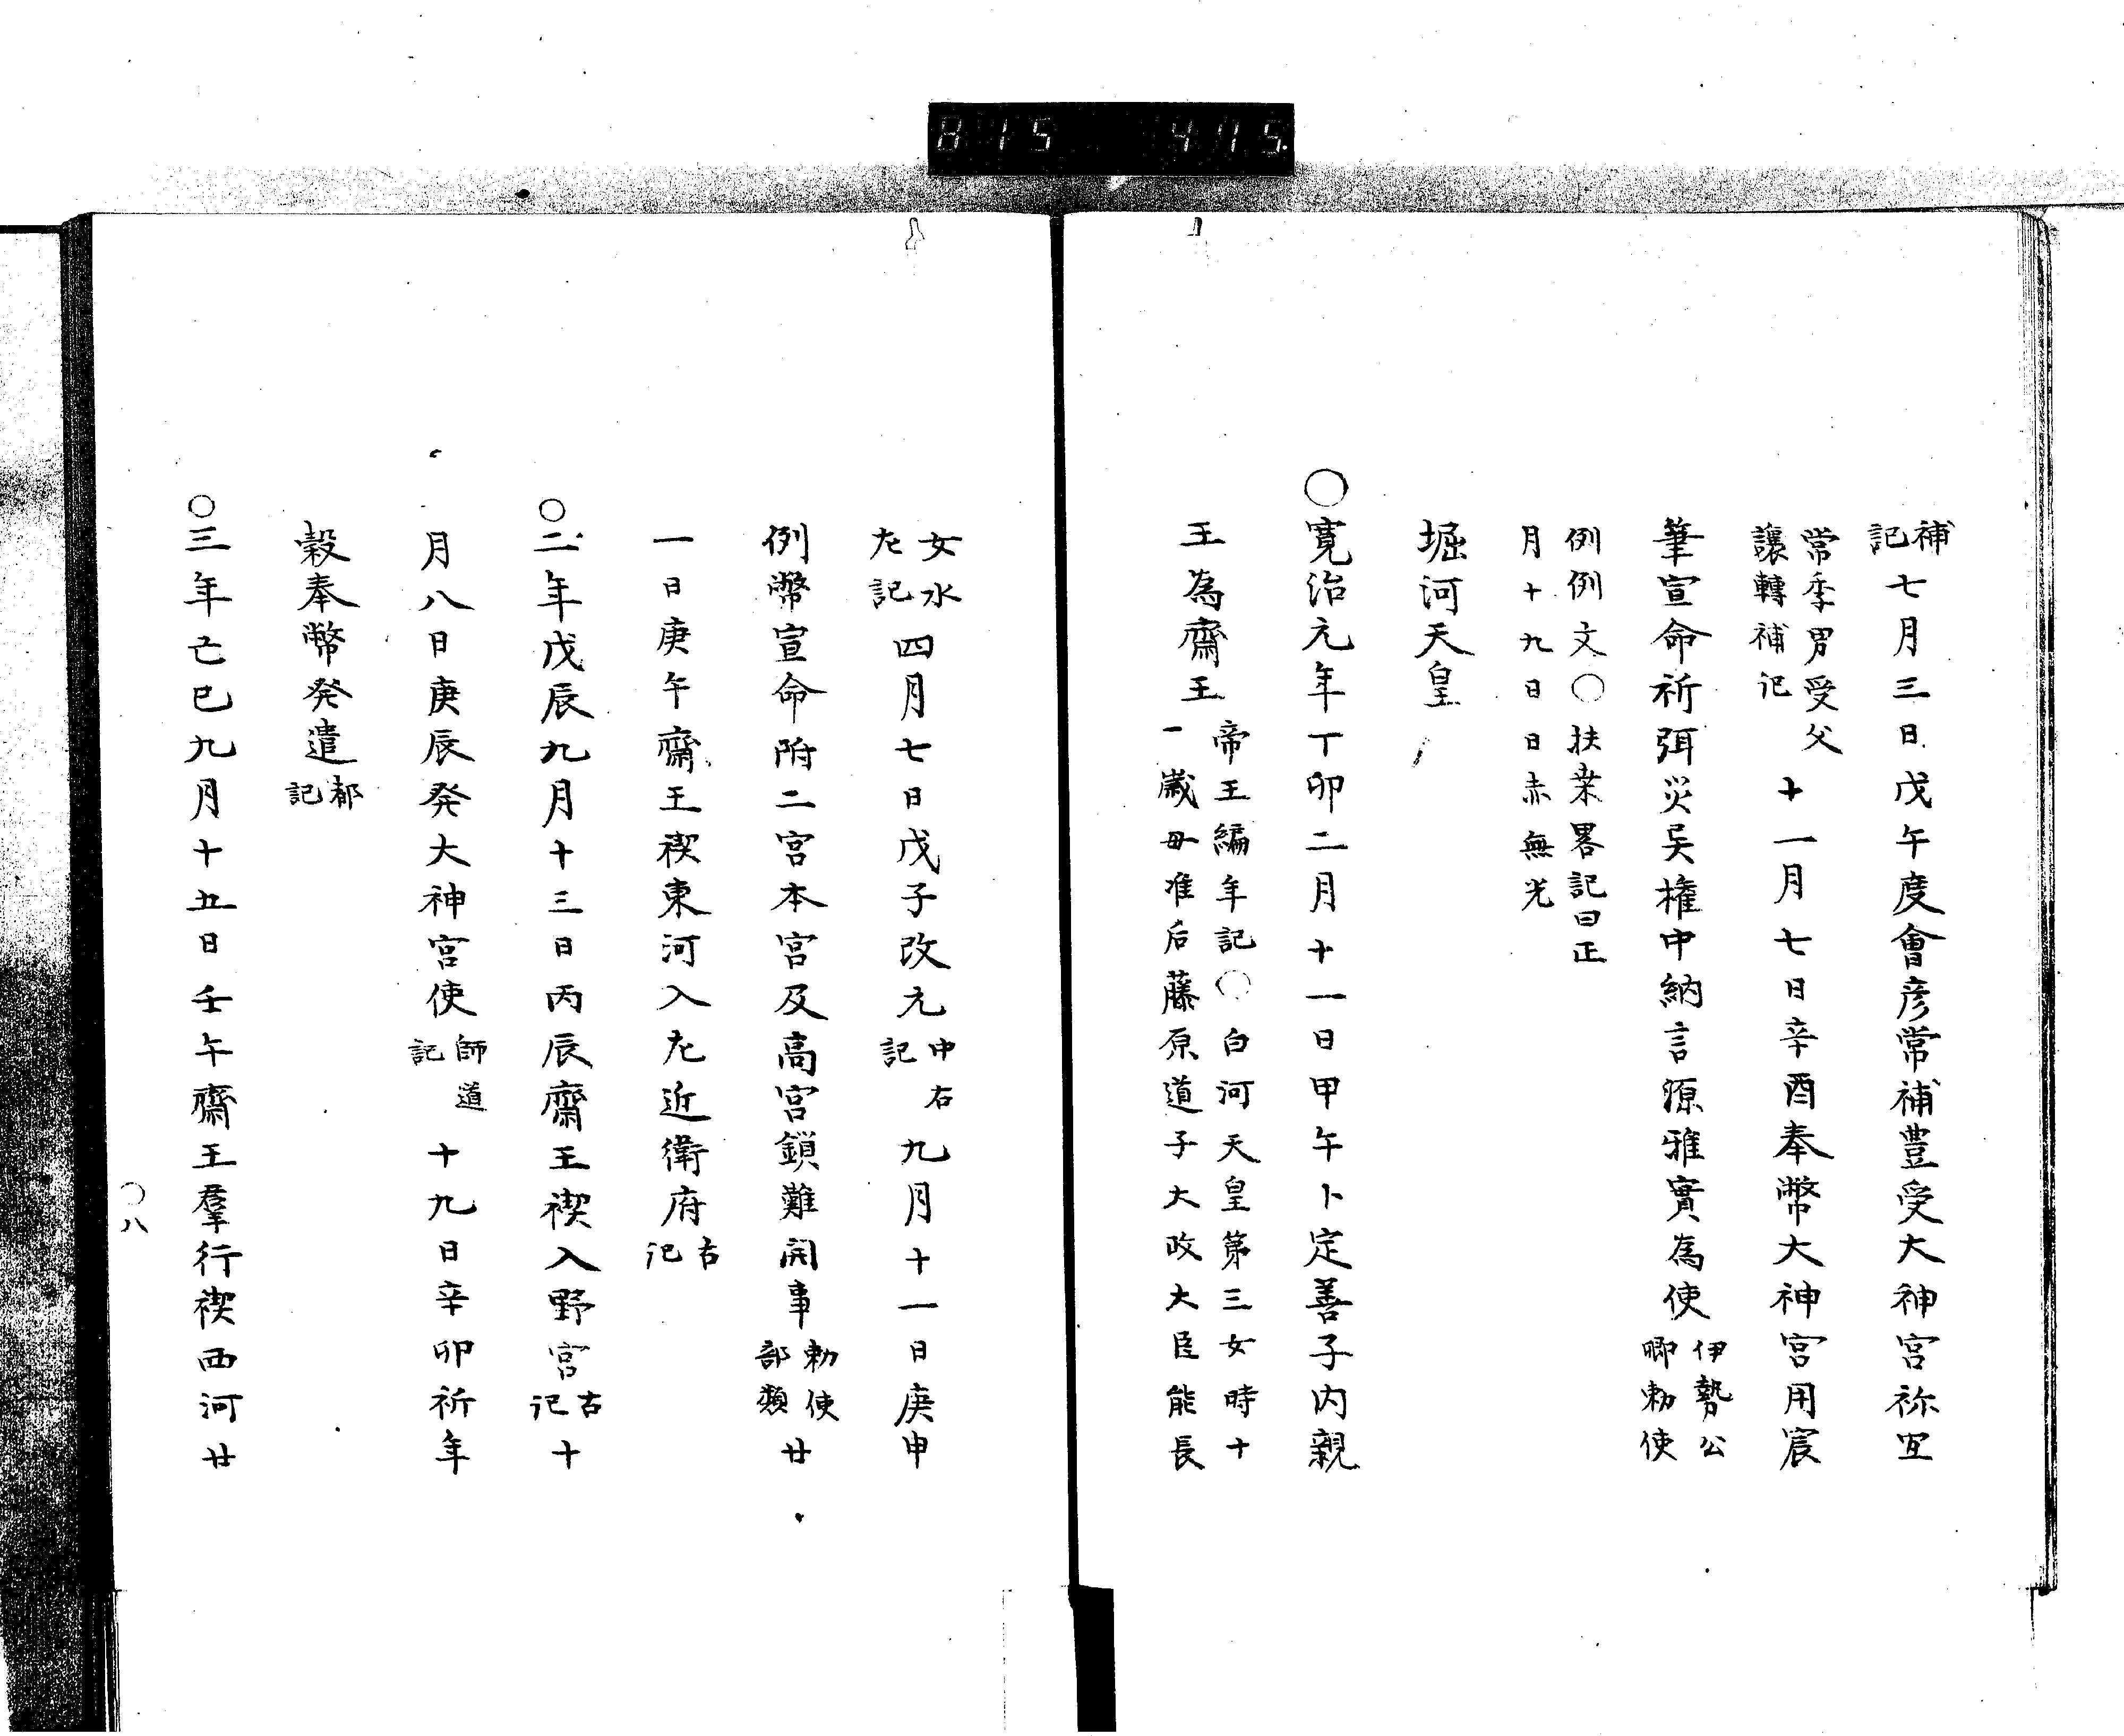 補記七月三日戊午度會彦常補豊受大神宮祢冝
常季男受父讓轉補記十一月七日辛酉奉幣大神宮用宸
筆宣命祈弭災異権中納言源雅實為使伊勢公卿勅使
例例文〇扶桒畧記曰正月十九日日赤無光
堀河天皇
〇寛治元年丁卯二月十一日甲午卜定善子内親
王為齋王帝王編年記〇白河天皇第三女時十一歳母准后藤原道子大政大臣能長
女水左記四月七日戊子改元中右記九月十一日庚申
例幣宣命附二宮本宮及高宮鎖難開事勅使部類廿
一日庚午齋王禊東河入左近衛府古記
〇二年戊辰九月十三日丙辰齋王禊入野宮古記十
月八日庚辰発大神宮使師道記十九日辛卯祈年
穀奉幣発遣都記
〇三年己巳九月十五日壬午齋王羣行禊西河廿
〇八
815 475